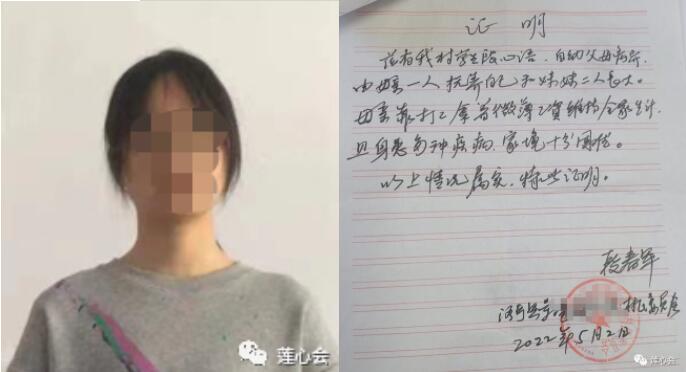 证 明
兹有我村学生段心语，自幼父母离异，
由母亲一人抚养自己和妹妹二人长大。
母亲靠打工拿着微薄工资维持全家生计，
且身患多种疾病，家境十分困难。
以上情况属实，特此证明。
段春军
2022年5月2日
莲心会
莲心会